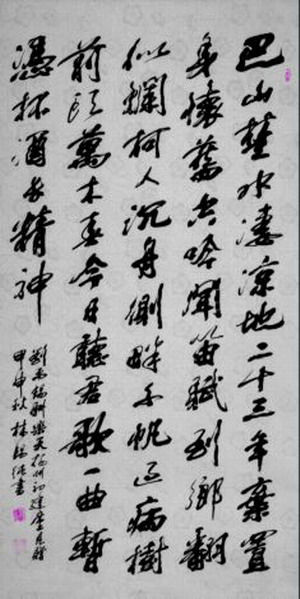 巴山楚水淒凉地二十三年棄置
身懷舊空吟聞笛賦到鄉翻
似爛柯人沉舟側畔千帆過病樹
前頭萬木春今日聽君歌一曲暫
憑杯酒長精神
劉禹錫酬樂天揚州初逢席上見贈
甲申秋林錫純書